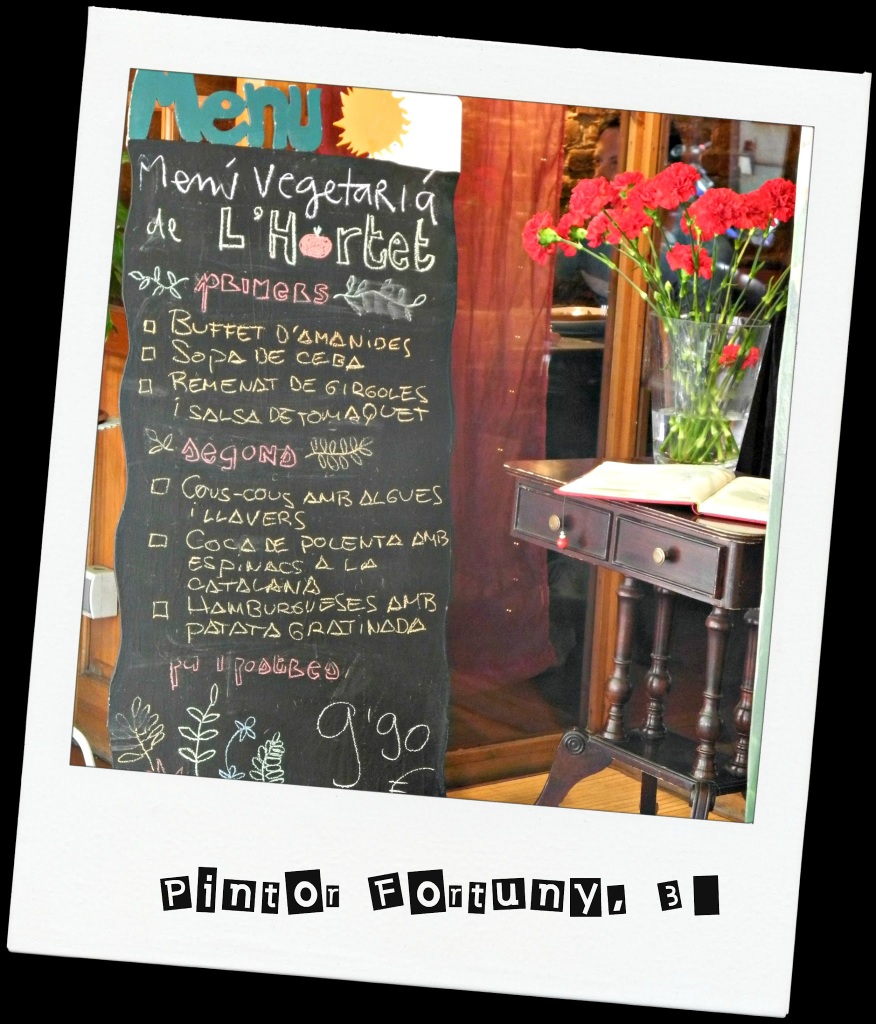 Menu
Menú Vegetarià
de L'Hortet
PRIMERS
BUFFET D'AMANIDES
SOPA DE CEBA
REMENAT DE GIRGOLES
i SALSA DE TOMAQUET
SEGONS
COUS-COUS AMB ALGUES
i LLAVERS
COCA DE POLENTA AMB
ESPINACS A LA
CATALANA
HAMBURGUESES AMB
PATATA GRATINADA
pa i postres
9'90
€
Pintor Fortuny, 3